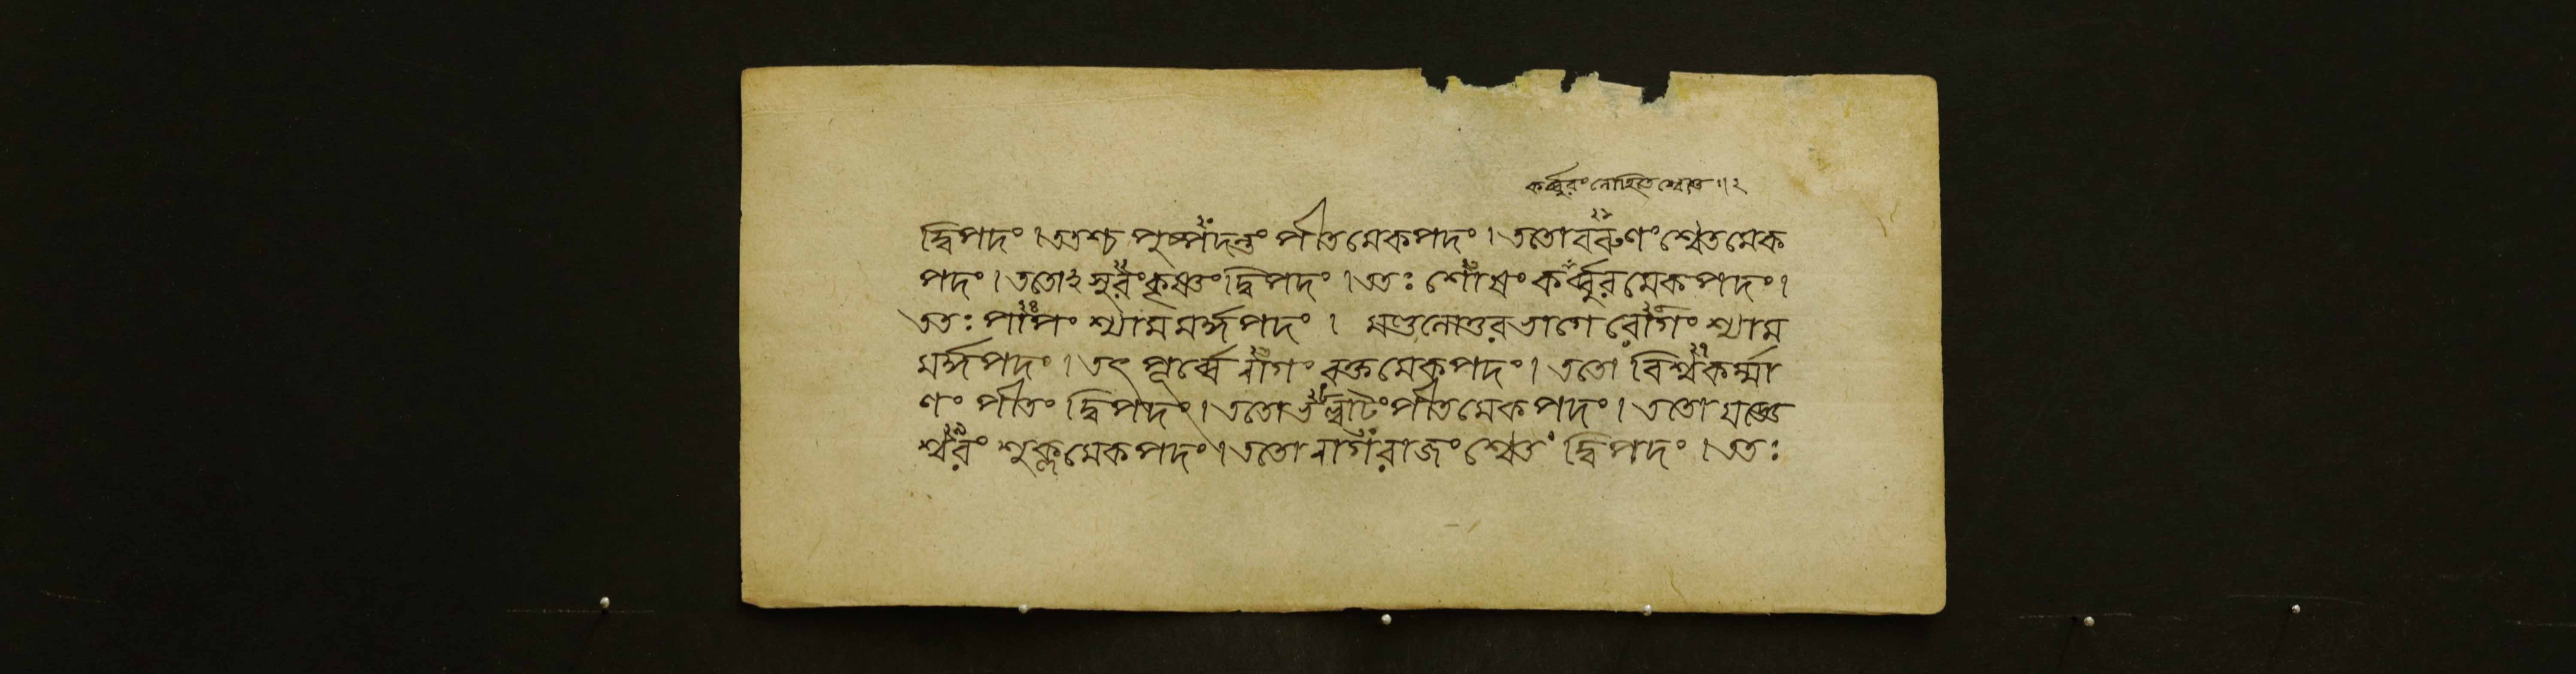 কর্ব্বুরং লোহিতশ্বেত ॥ ২
দ্বিপদং । ততশ্চ পুষ্পদন্তং পীতমেকপদং । ততো বরুণং শ্বেতমেক
পদং । ততোঽসুরং কৃষ্ণং দ্বিপদং । ততঃ শোষং কর্ব্বুরমেকপদং ।
ততঃ পাপং শ্যামমর্দ্ধপদং । মণ্ডলোত্তরভাগে রোগং শ্যাম
মর্দ্ধপদং । তৎ পূর্ব্বে নাগং রক্তমেকপদং । ততো বিশ্বকর্ম্মা
ণং পীতং দ্বিপদং । ততো ভল্লাটং পীতমেকপদং । ততো যজ্ঞে
শ্বরং শুক্লমেকপদং । ততো নাগরাজং শ্বেতং দ্বিপদং । ততঃ